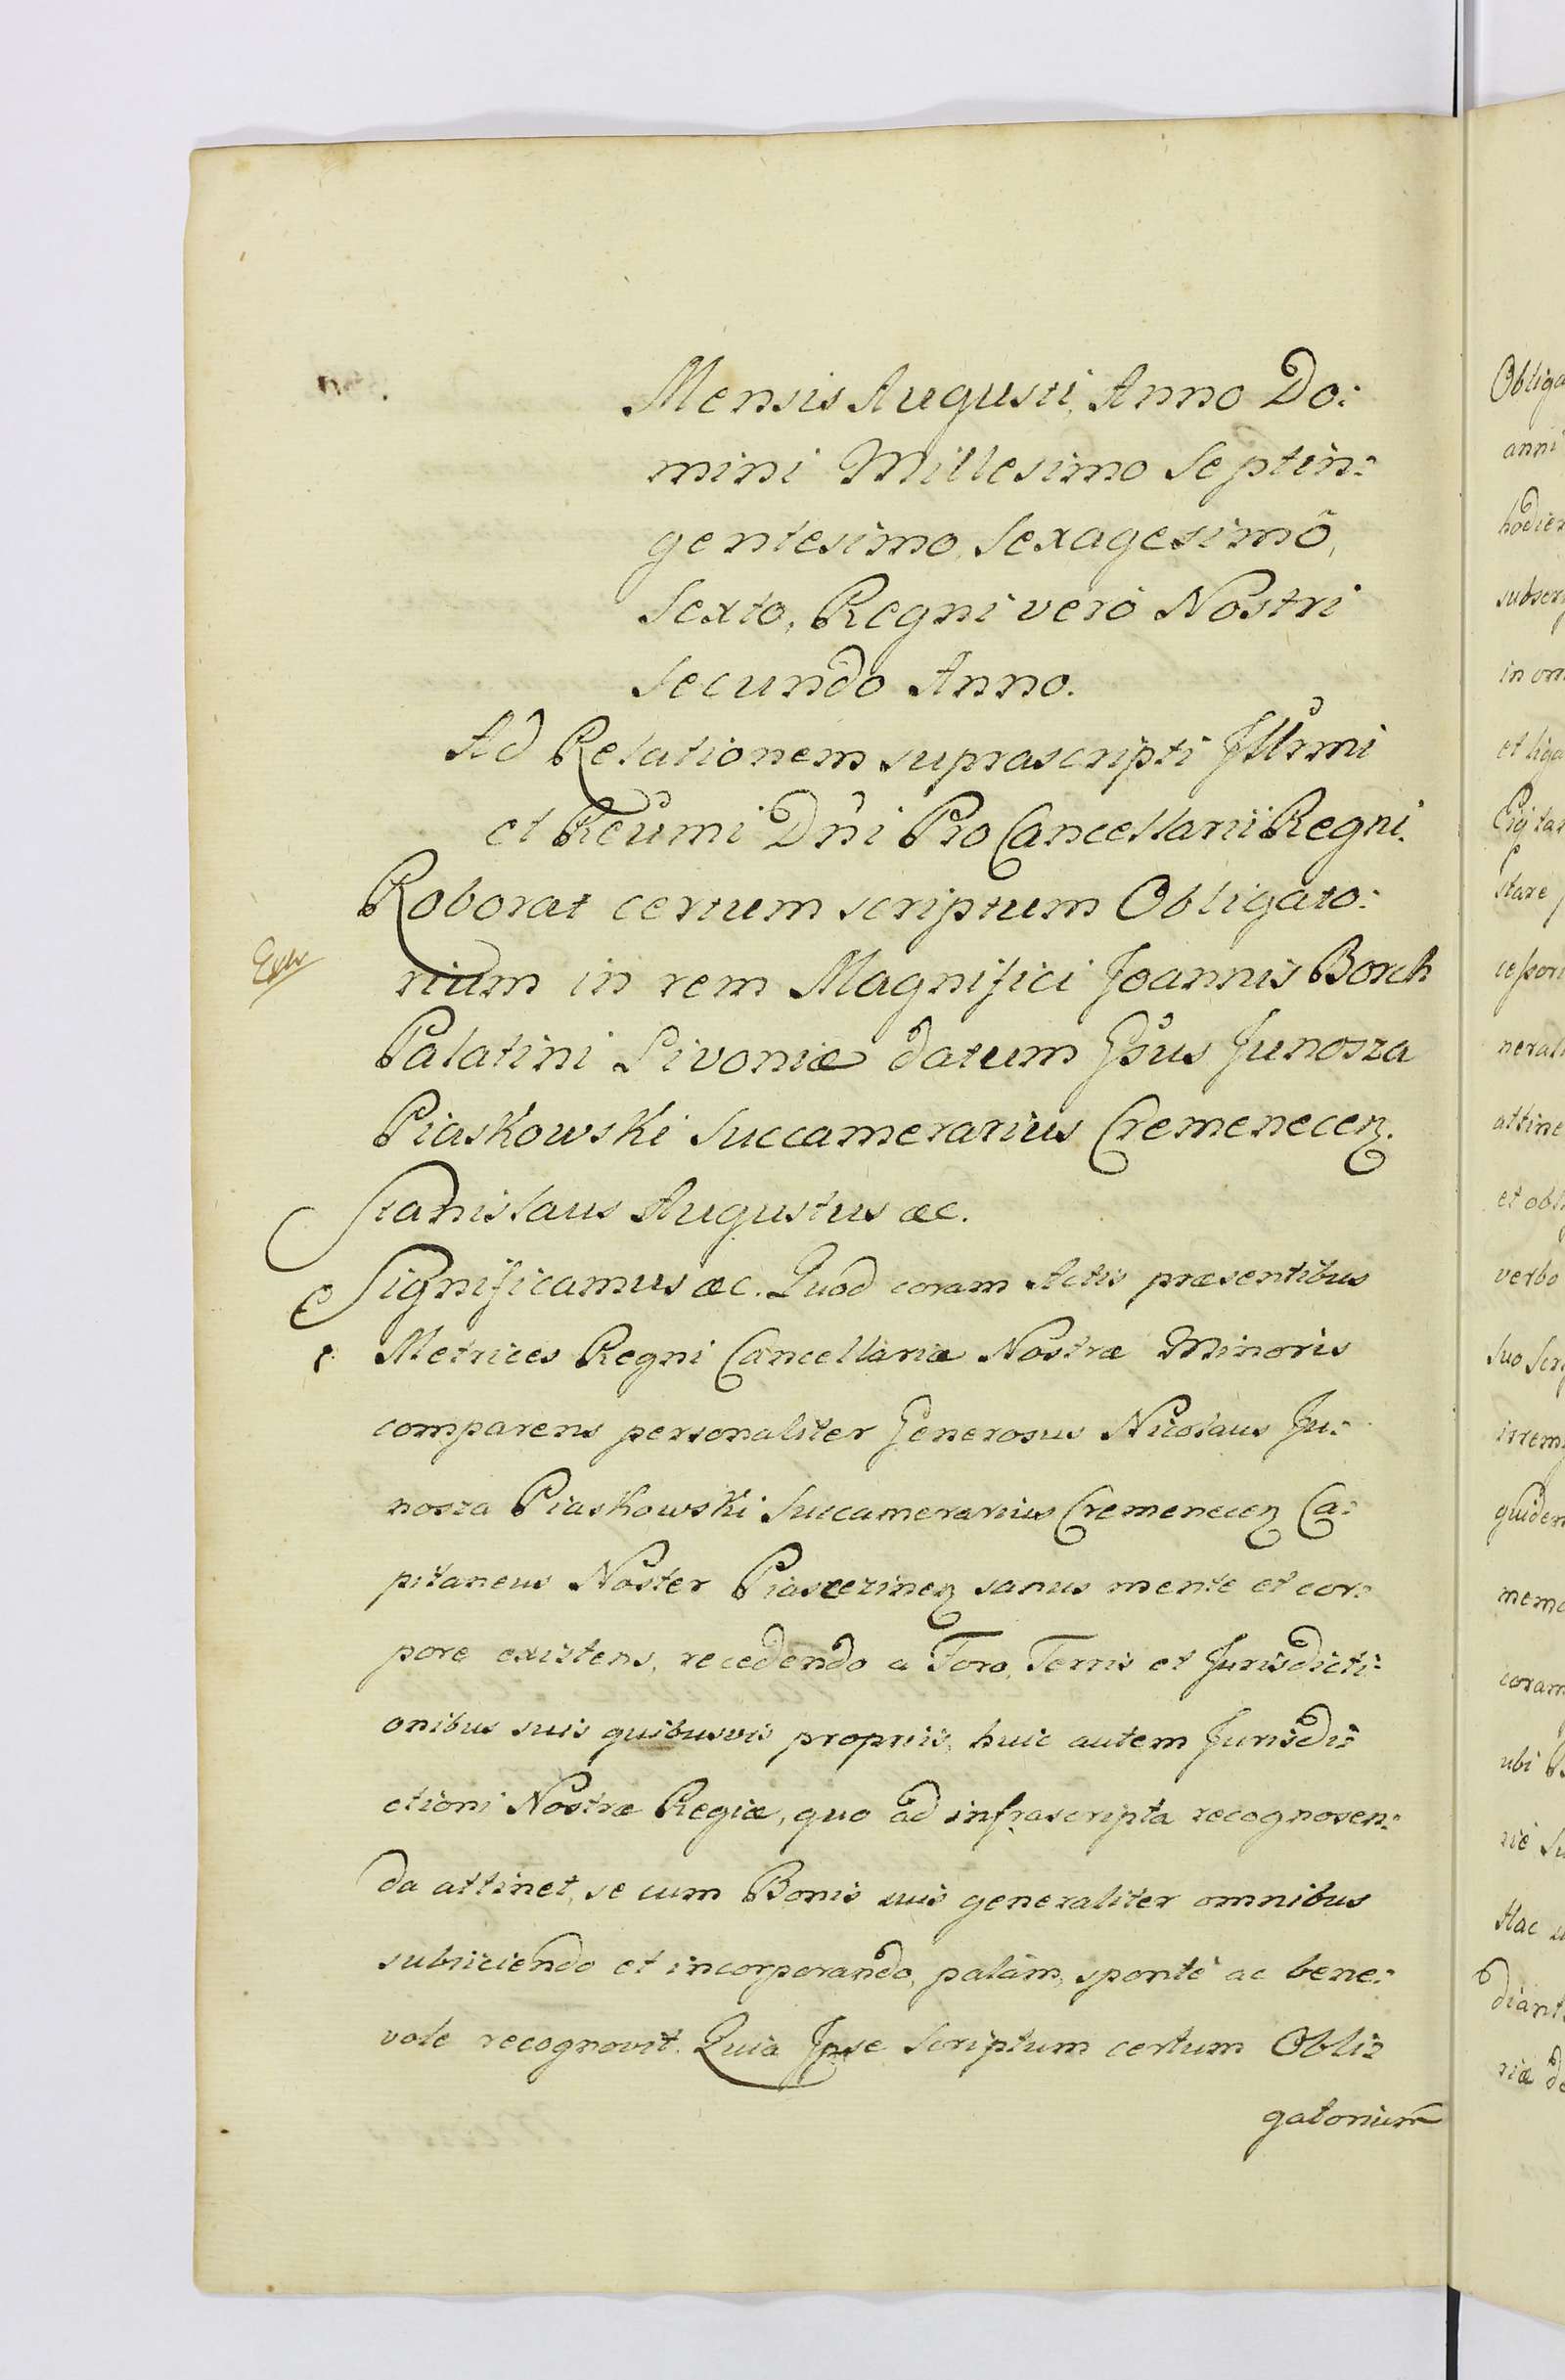 Mensis Augusti, Anno Do:
mini Millesimo Septin:
gentesimo, Sexagesimô,
Sexto, Regni verò Nostri
Secundo Anno.
Ad Relationem suprascripti Jllrmi
et Reûmi Dñi ProCancellarii Regni.
Roborat certum scriptum Obligato:
rium in rem Magnifici Joannis Borch
Palatini Livoniæ datum Gsus Junosza
Piaskowski Succamerarius Cremenecen.
Stanislaus Augustus &c.
Significamus &c. Quod coram Actis præsentibus
Metrices Regni Cancellariæ Nostræ Minoris
comparens personaliter Generosus Nicolaus Ju:
nosza Piaskowski Succamerarius Cremenecen Ca:
pitaneus Noster Piaseczinen sanus mente et cor:
pore existens, recedendo a Foro, Terris et Jurisdicti:
onibus suis quibusvis propriis, huic autem Jurisdi:
ctioni Nostræ Regiæ, quo ad infrascripta recognosen:
da attinet, se cum Bonis suis generaliter omnibus
subiiciendo et incorporando, palàm, spontè ac bene:
vole recognovit. Quia Jpse Scriptum certum Obli:
gatorium
Obliga
anni
hodier
subscr
in om
et liga
stare
nerali
attine
et obli
verbo
suo Scr
irrem
quidem
memo
coram
ubi
Hac
diant
riæ de